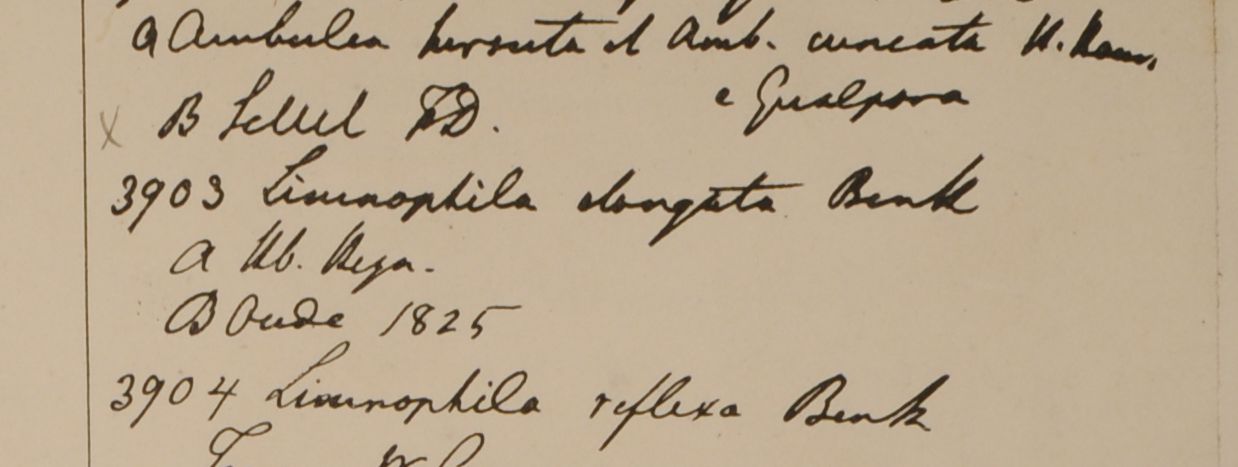 a Ambulia hirsuta et Amb. cuneata H. Ham.
e Gualpara
B Sellet FD.
3903 Limnophila elongata Benth
a Hb. Heyn.
B Oude 1825
3904 Limnophila reflexa Benth